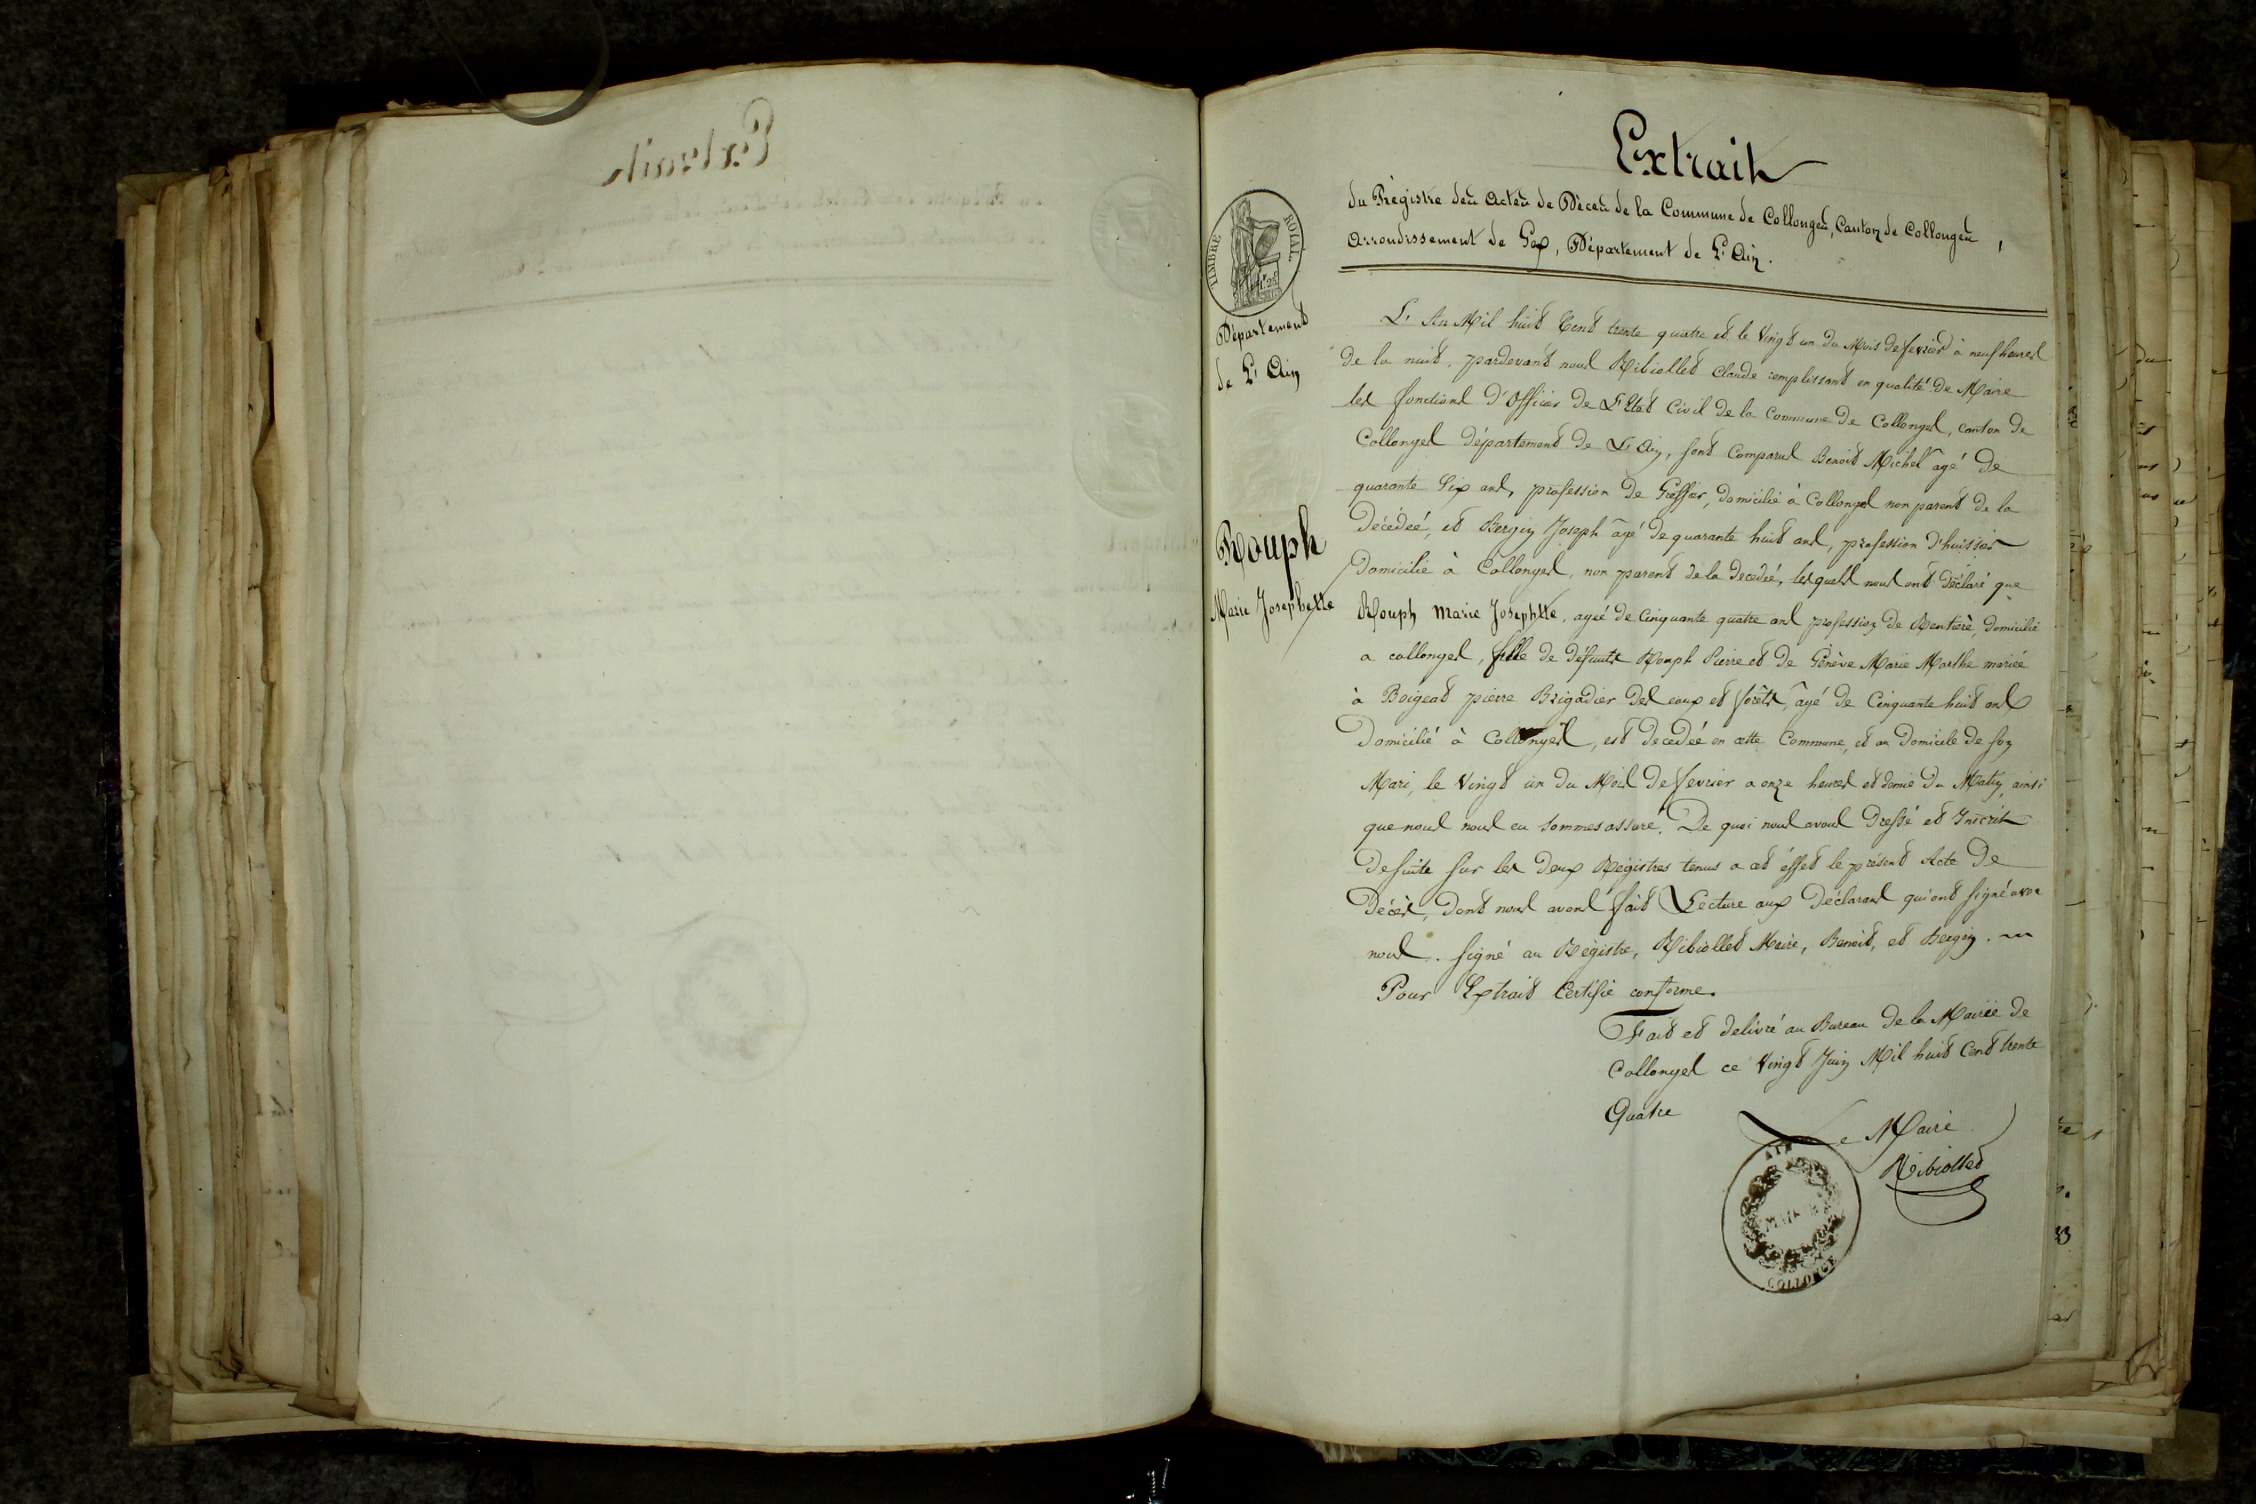 Extrait
du Régistre des Actes de Décès de la Commune de Collonges, Canton de Collonges,
Arrondissement de Gex, Département de L'Ain.
TIMBRE ROYAL
Département
de L'Ain
Rouph
Marie Josephette
L'An Mil huit Cent trente quatre et le Vingt un du Mois de fevrier à neuf heures
de la nuit, pardevant nous Ribiollet Claude remplissant en qualité de Maire
les fonctions d'Officier de L'Etat Civil de la Commune de Collonges, canton de
Collonges département de L'Ain, sont Comparus Benoit Michel âgé de
quarante Six ans, profession de Greffier, domicilié à Collonges non parent de la
Décédeé, et Bergin Joseph âgé de quarante huit ans, profession d'huissier
Domicilié à Collonges, non parent de la decedeé, lesquels nous ont déclaré que
Rouph Marie Josephtte, ageé de Cinquante quatre ans profession de Rentierè, domicilié
a collonges, fille de défunts Rouph Pierre et de Génève Marie Marthe mariée
à Boigeat pierre Brigadier des eaux et forêts, âgé de Cinquante huit ans
Domicilié à Collonges, est decedeé en cette Commune, et au Domicile de son
Mari, le Vingt un du Mois de fevrier a onze heures et demie du Matin, ainsi
que nous nous en sommes assuré. De quoi nous avons Dressé et Inscrit
De suite sur les deux Régistres tenus a cet éffet le présent Acte De
Décès, Dont nous avons fait Lecture aux Déclarans qui ont signé avec
nous. Signé au Régistre, Ribiollet Maire, Benoit, et Bergin.
Pour Extrait Certifié conforme.
Fait et delivré au Bureau de la Mairie de
Collonges ce Vingt Juin Mil huit Cent trente
Quatre
Le Maire
Ribiollet
AIN
MAIRIE
COLLONGE